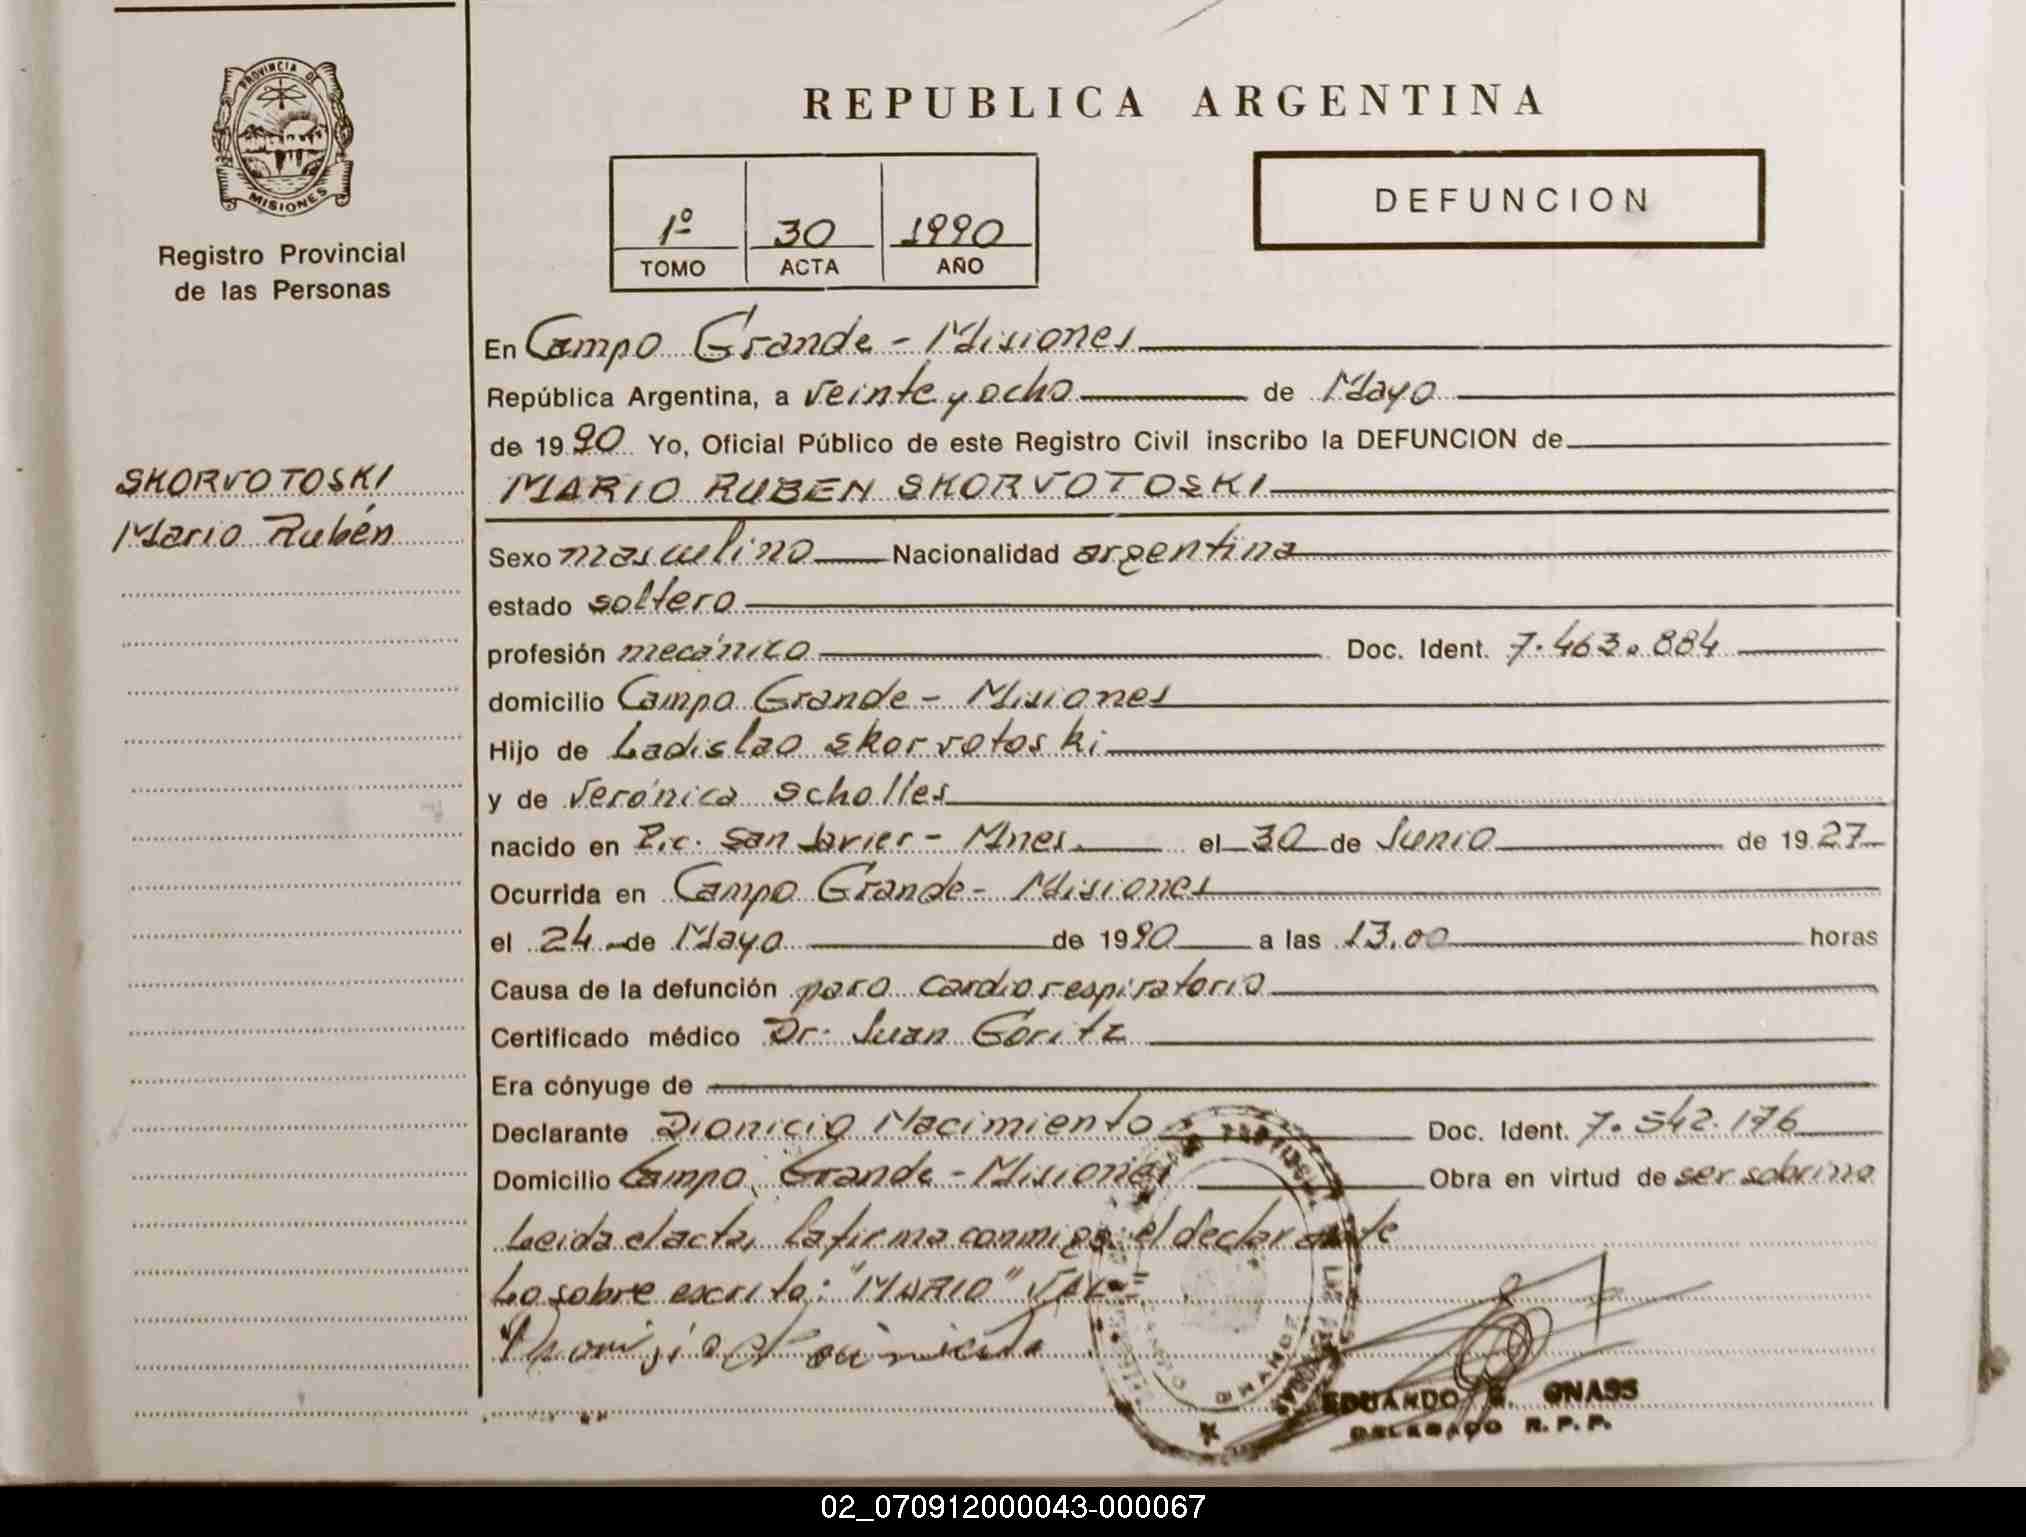 PROVINCIA DE
MISIONES
Registro Provincial
de las Personas
SKORVOTOSKI
Mario Rubén
REPUBLICA ARGENTINA
1º 30 1990
TOMO ACTA AÑO
DEFUNCION
En Campo Grande - Misiones
República Argentina, a veinte y ocho de Mayo
de 1990 Yo, Oficial Público de este Registro Civil inscribo la DEFUNCION de
MARIO RUBEN SKORVOTOSKI
Sexo masculino Nacionalidad argentina
estado soltero
profesión mecánico Doc. Ident. 7.463.884
domicilio Campo Grande - Misiones
Hijo de Ladislao Skorvotoski
y de Verónica Scholles
nacido en Pic. San Javier - Mnes. el 30 de Junio de 1927
Ocurrida en Campo Grande - Misiones
el 24 de Mayo de 1990 a las 13.00 horas
Causa de la defunción paro cardiorespiratorio
Certificado médico Dr. Juan Goritz
Era cónyuge de
Declarante Dionicio Nacimiento Doc. Ident. 7.542.176
Domicilio Campo Grande - Misiones Obra en virtud de ser sobrino
Leida el acta, la firma conmigo el declarante
Lo sobre escrito: "MARIO" VALE
EDUARDO GNASS
DELEGADO R.P.P.
02_070912000043-000067